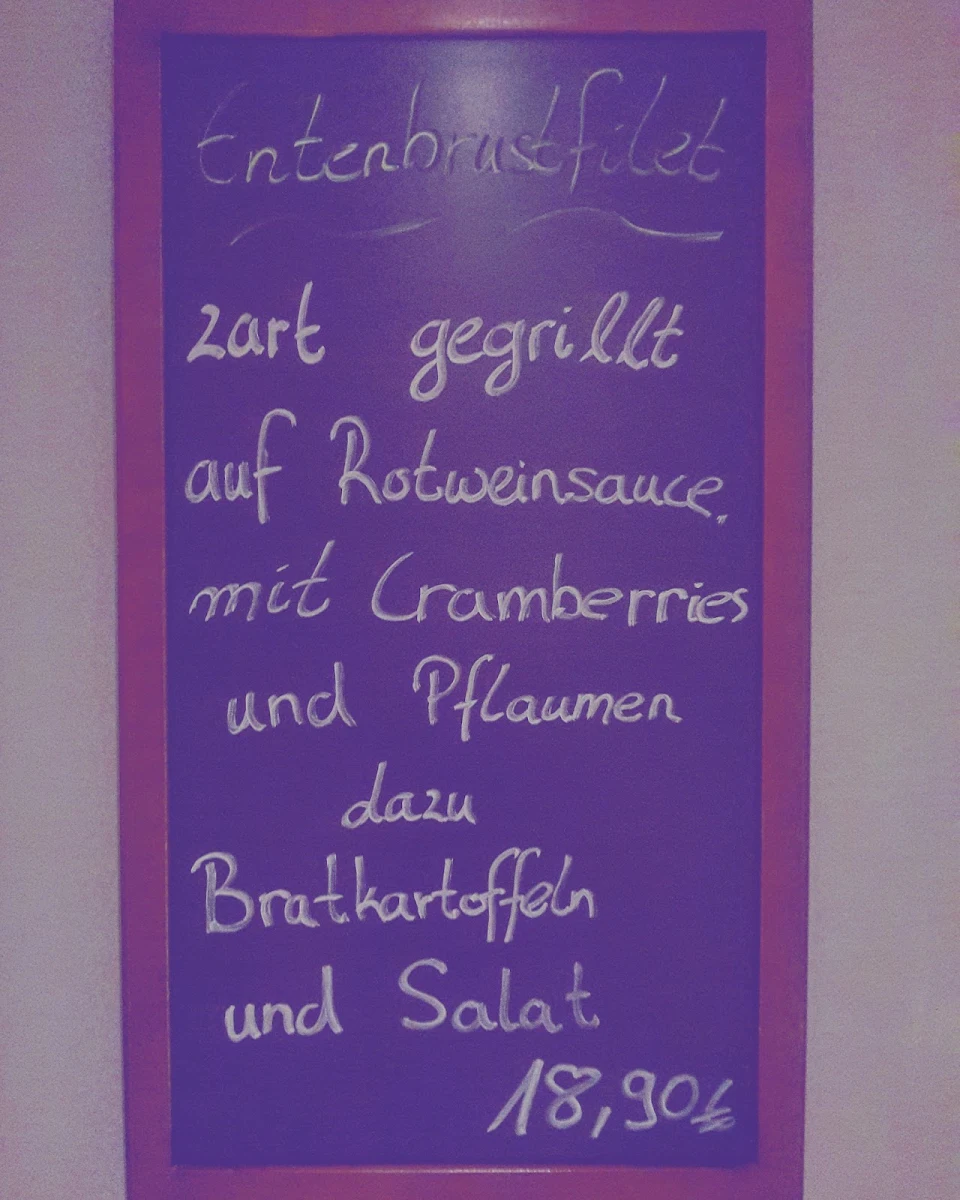 Entenbrustfilet
zart gegrillt
auf Rotweinsauce,
mit Cramberries
und Pflaumen
dazu
Bratkartoffeln
und Salat
18,90€